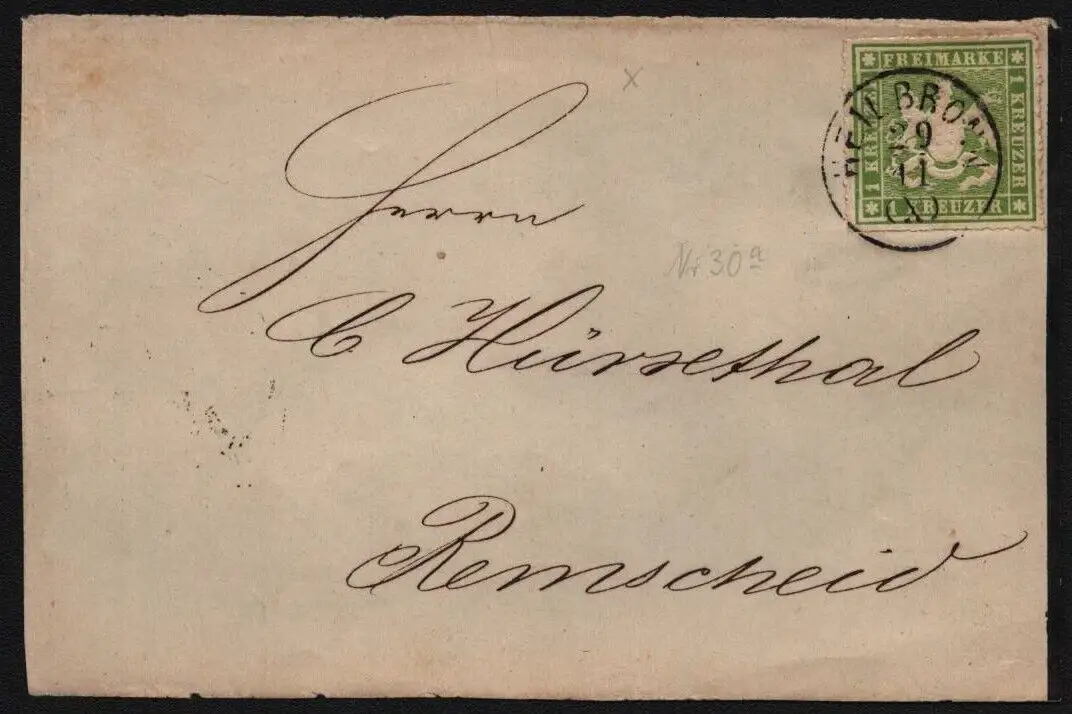 FREIMARKE
1 KREUZER
1 KREUZER
1 KREUZER
HEILBRONN
29
11
Herrn
Nr 30a
C Hürxthal
Remscheid